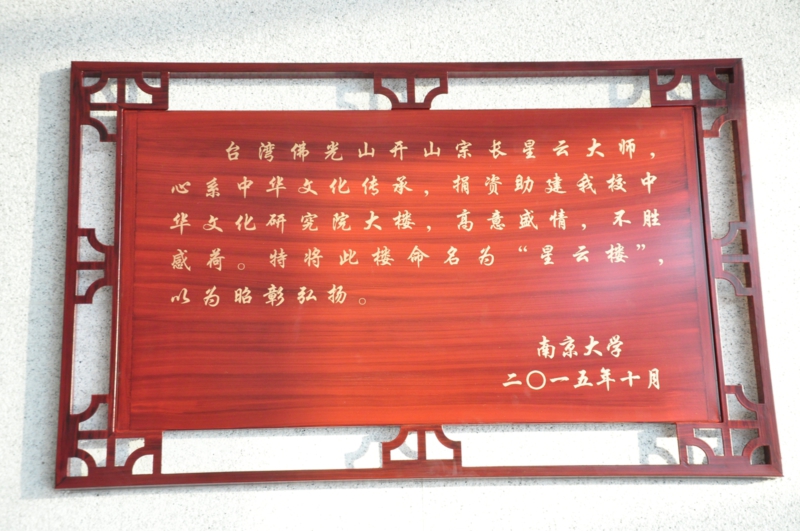 台湾佛光山开山宗长星云大师，
心系中华文化传承，捐资助建我校中
华文化研究院大楼，高意盛情，不胜
感荷。特将此楼命名为“星云楼”，
以为昭彰弘扬。
南京大学
二〇一五年十月